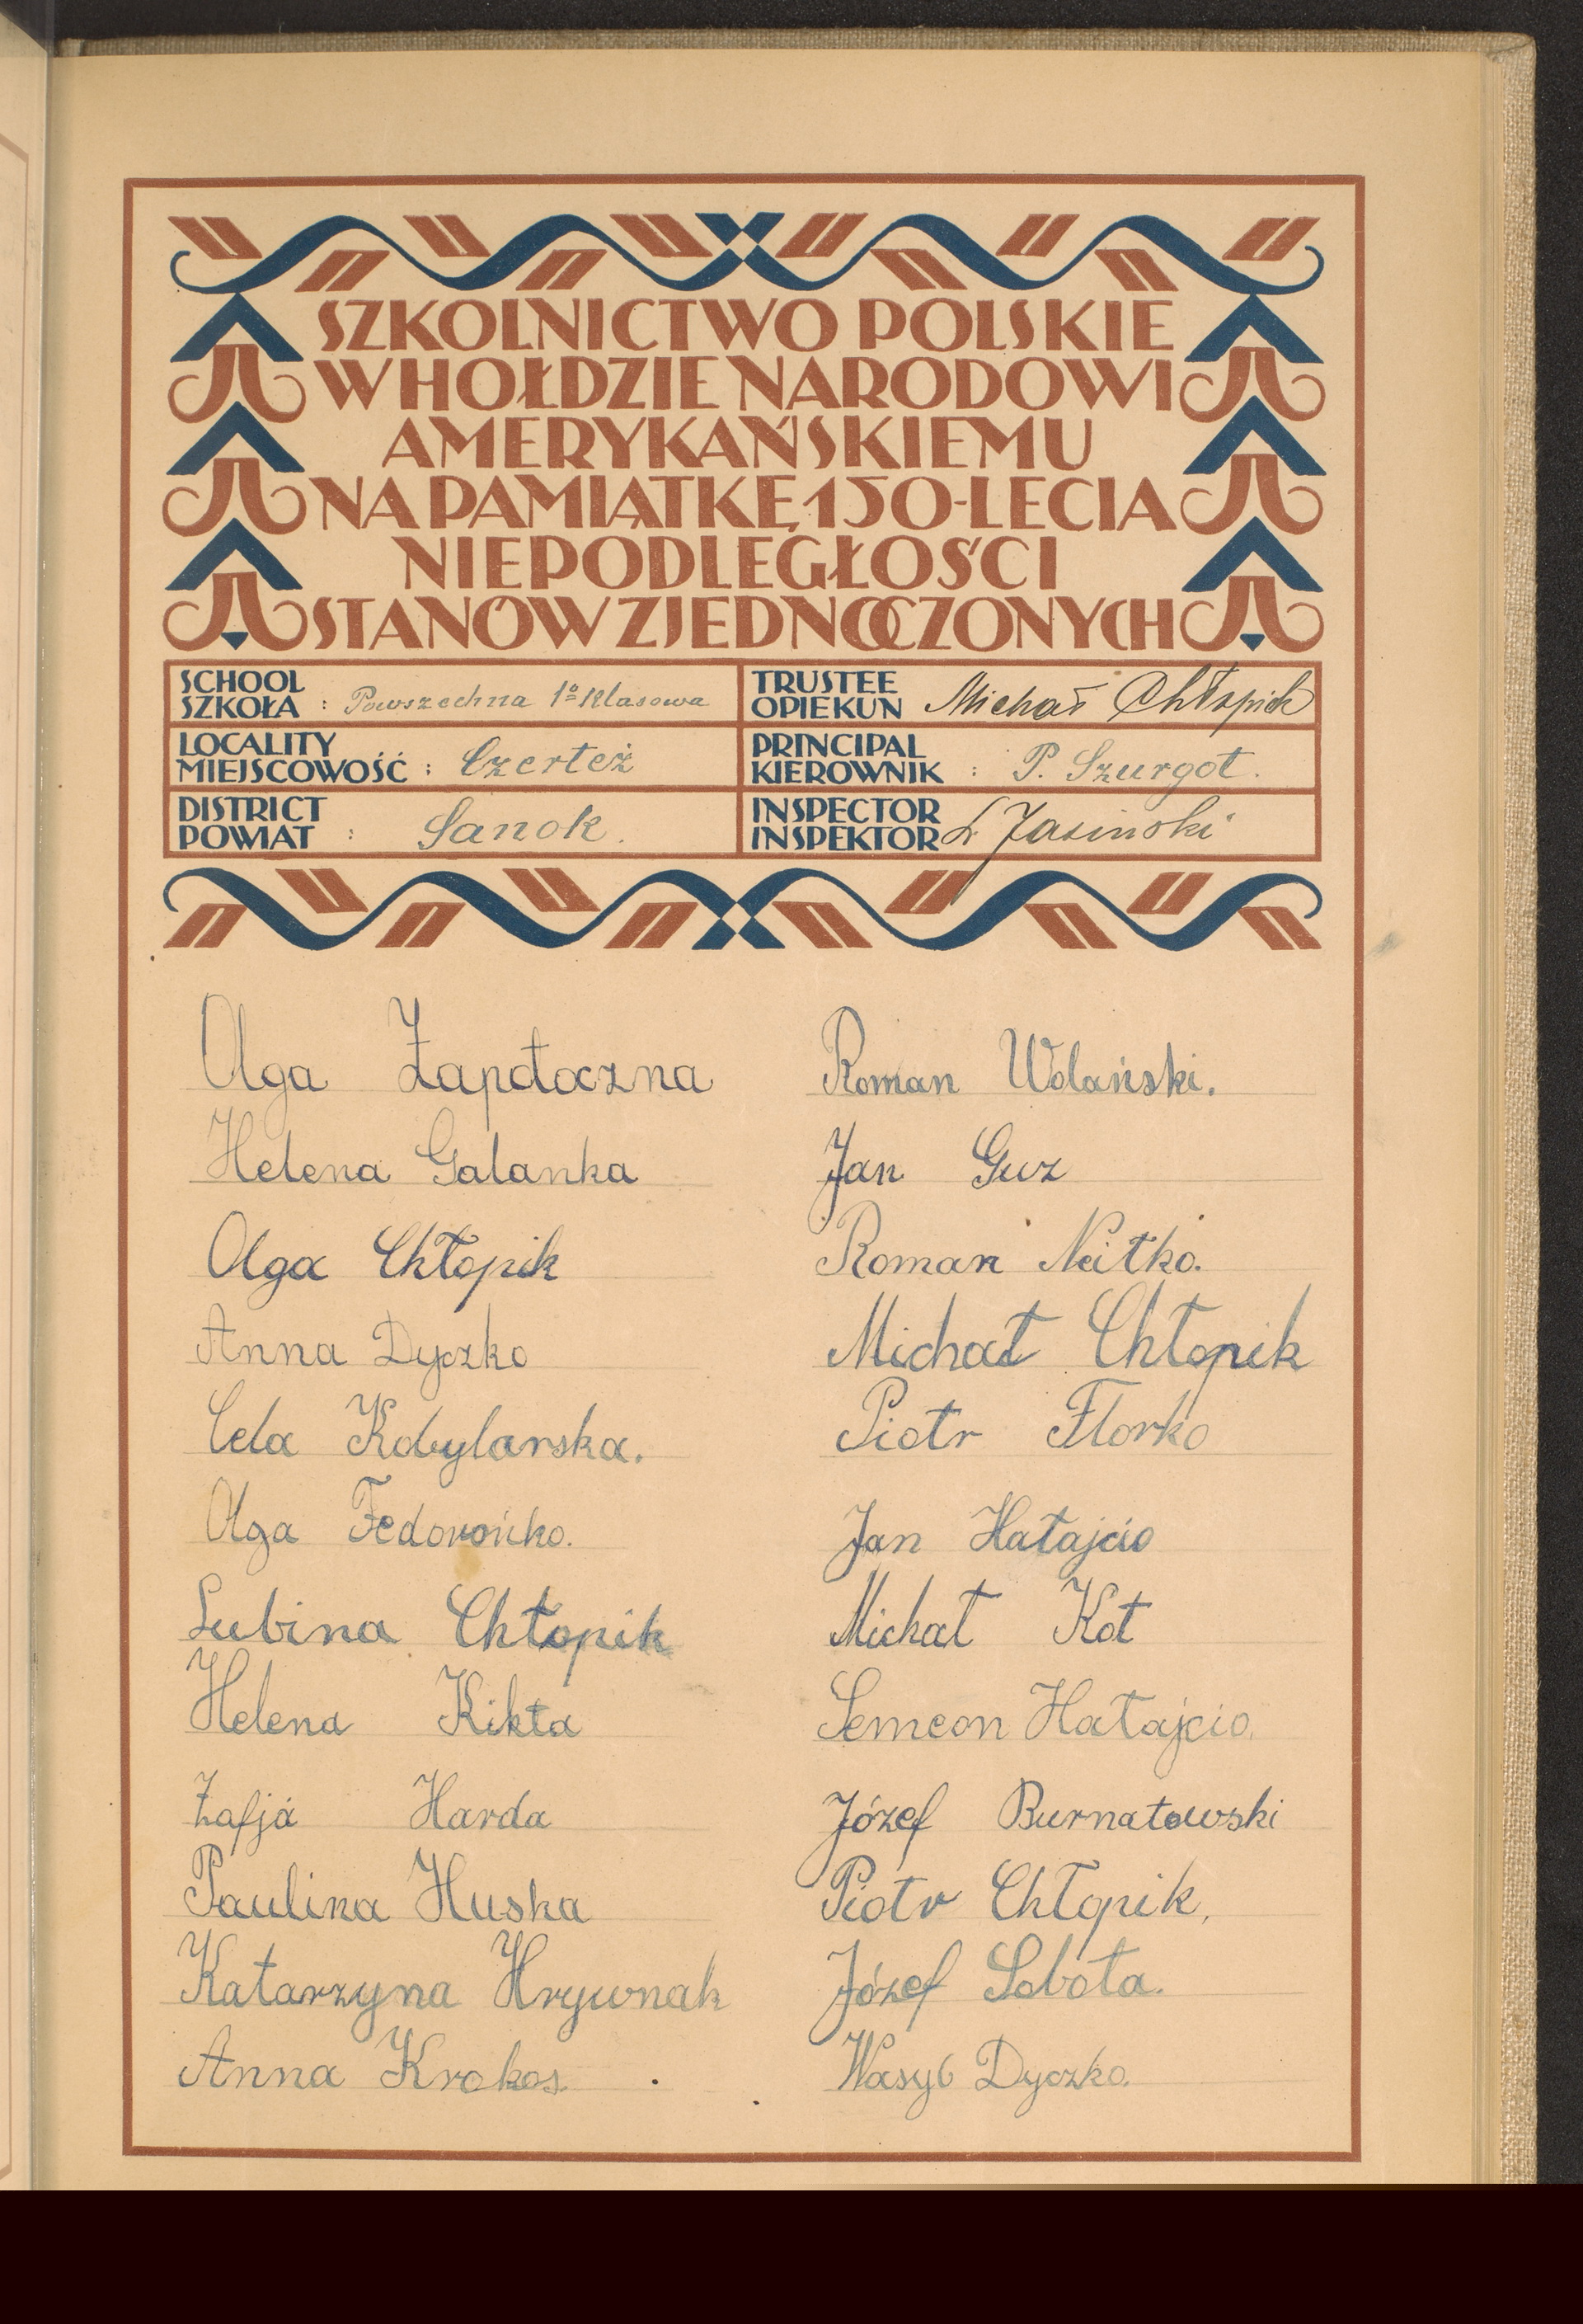 SZKOLNICTWO POLSKIE
W HOŁDZIE NARODOWI
AMERYKAŃSKIEMU
NA PAMIĄTKĘ 150-LECIA
NIEPODLEGŁOŚCI
STANÓW ZJEDNOCZONYCH
SCHOOL
SZKOŁA : Powszechna 1º Klasowa
TRUSTEE
OPIEKUN Michał Chłopik
LOCALITY
MIEJSCOWOŚĆ : Czerteż
PRINCIPAL
KIEROWNIK : P. Szurgot.
DISTRICT
POWIAT : Sanok.
INSPECTOR
INSPEKTOR Jasiński
Olga Zapotoczna
Helena Galanka
Olga Chłopik
Anna Dyczko
Cela Kobylarska.
Olga Fedorońko.
Lubina Chłopik
Helena Kikta
Zofja Harda
Paulina Huska
Katarzyna Hrywnak
Anna Krokos
Roman Wolański.
Jan Guz
Roman Neitko.
Michał Chłopik
Piotr Florko
Jan Hatajcio
Michał Kot
Semeon Hatajcio.
Józef Burnatowski
Piotr Chłopik,
Józef Sobota.
Wasyl Dyczko.